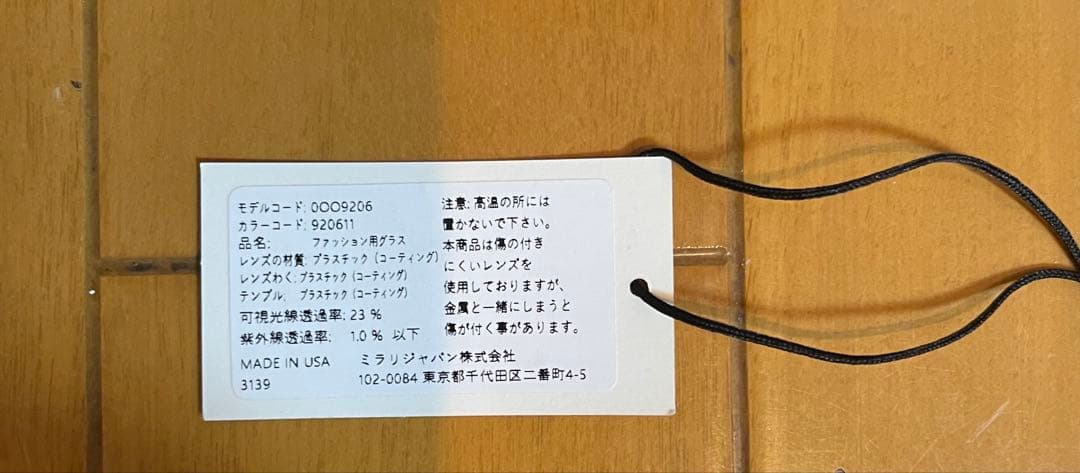 モデルコード: 0OO9206
カラーコード: 920611
品名: ファッション用グラス
レンズの材質: プラスチック (コーティング)
レンズわく: プラスチック (コーティング)
テンプル: プラスチック (コーティング)
可視光線透過率: 23 %
紫外線透過率: 1.0 % 以下
注意: 高温の所には
置かないで下さい。
本商品は傷の付き
にくいレンズを
使用しておりますが、
金属と一緒にしまうと
傷が付く事があります。
MADE IN USA
3139
ミラリジャパン株式会社
102-0084 東京都千代田区二番町4-5